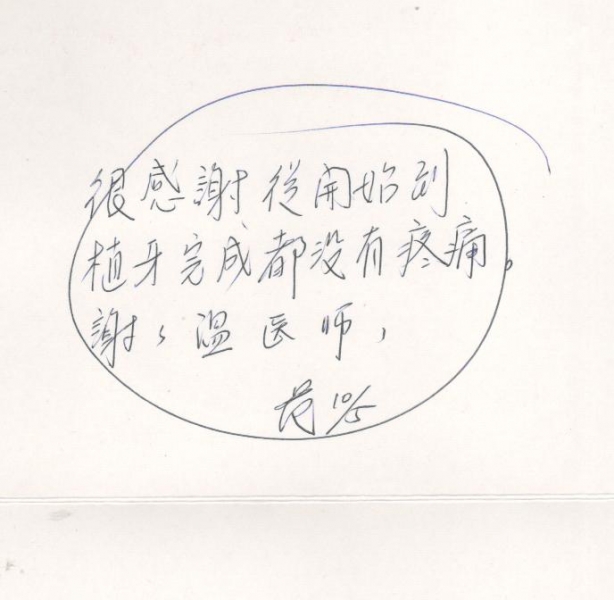 很感謝從開始到
植牙完成都没有疼痛。
謝々温医师,
10/5